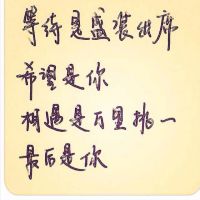 等待见盛装出席
希望是你
相遇是万里挑一
最后是你